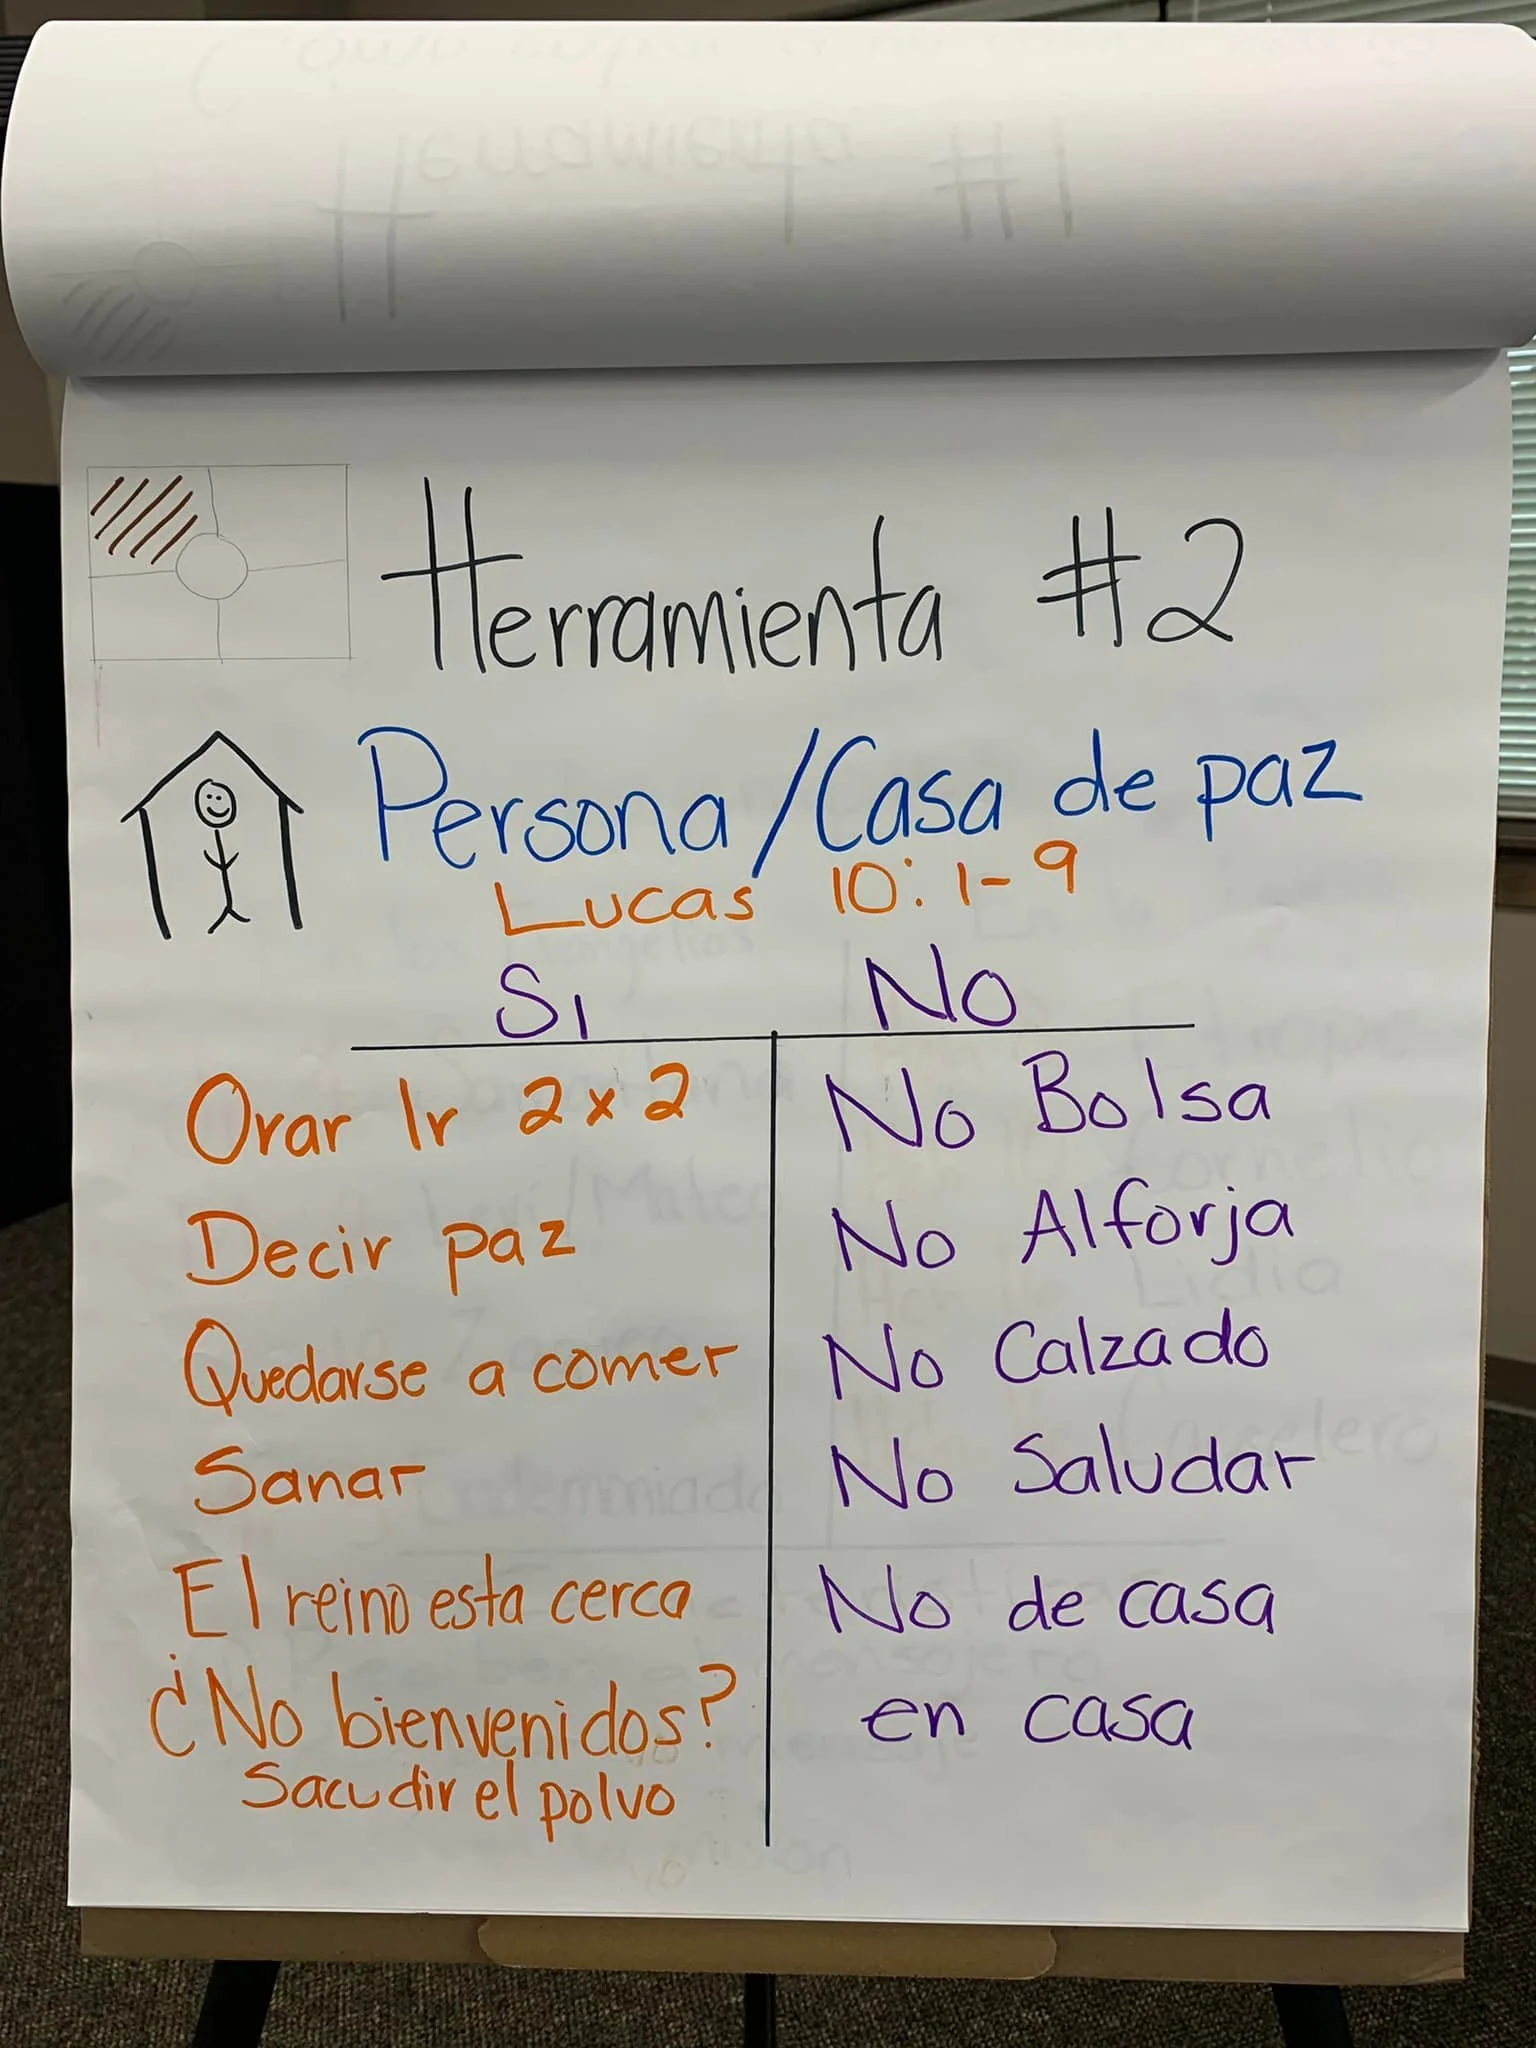 Herramienta #1
Herramienta #2
Persona/Casa de paz
Lucas 10:1-9
Si No
Orar Ir 2x2
Decir paz
Quedarse a comer
Sanar
El reino esta cerca
¿No bienvenidos?
Sacudir el polvo
No Bolsa
No Alforja
No Calzado
No Saludar
No de casa
en casa